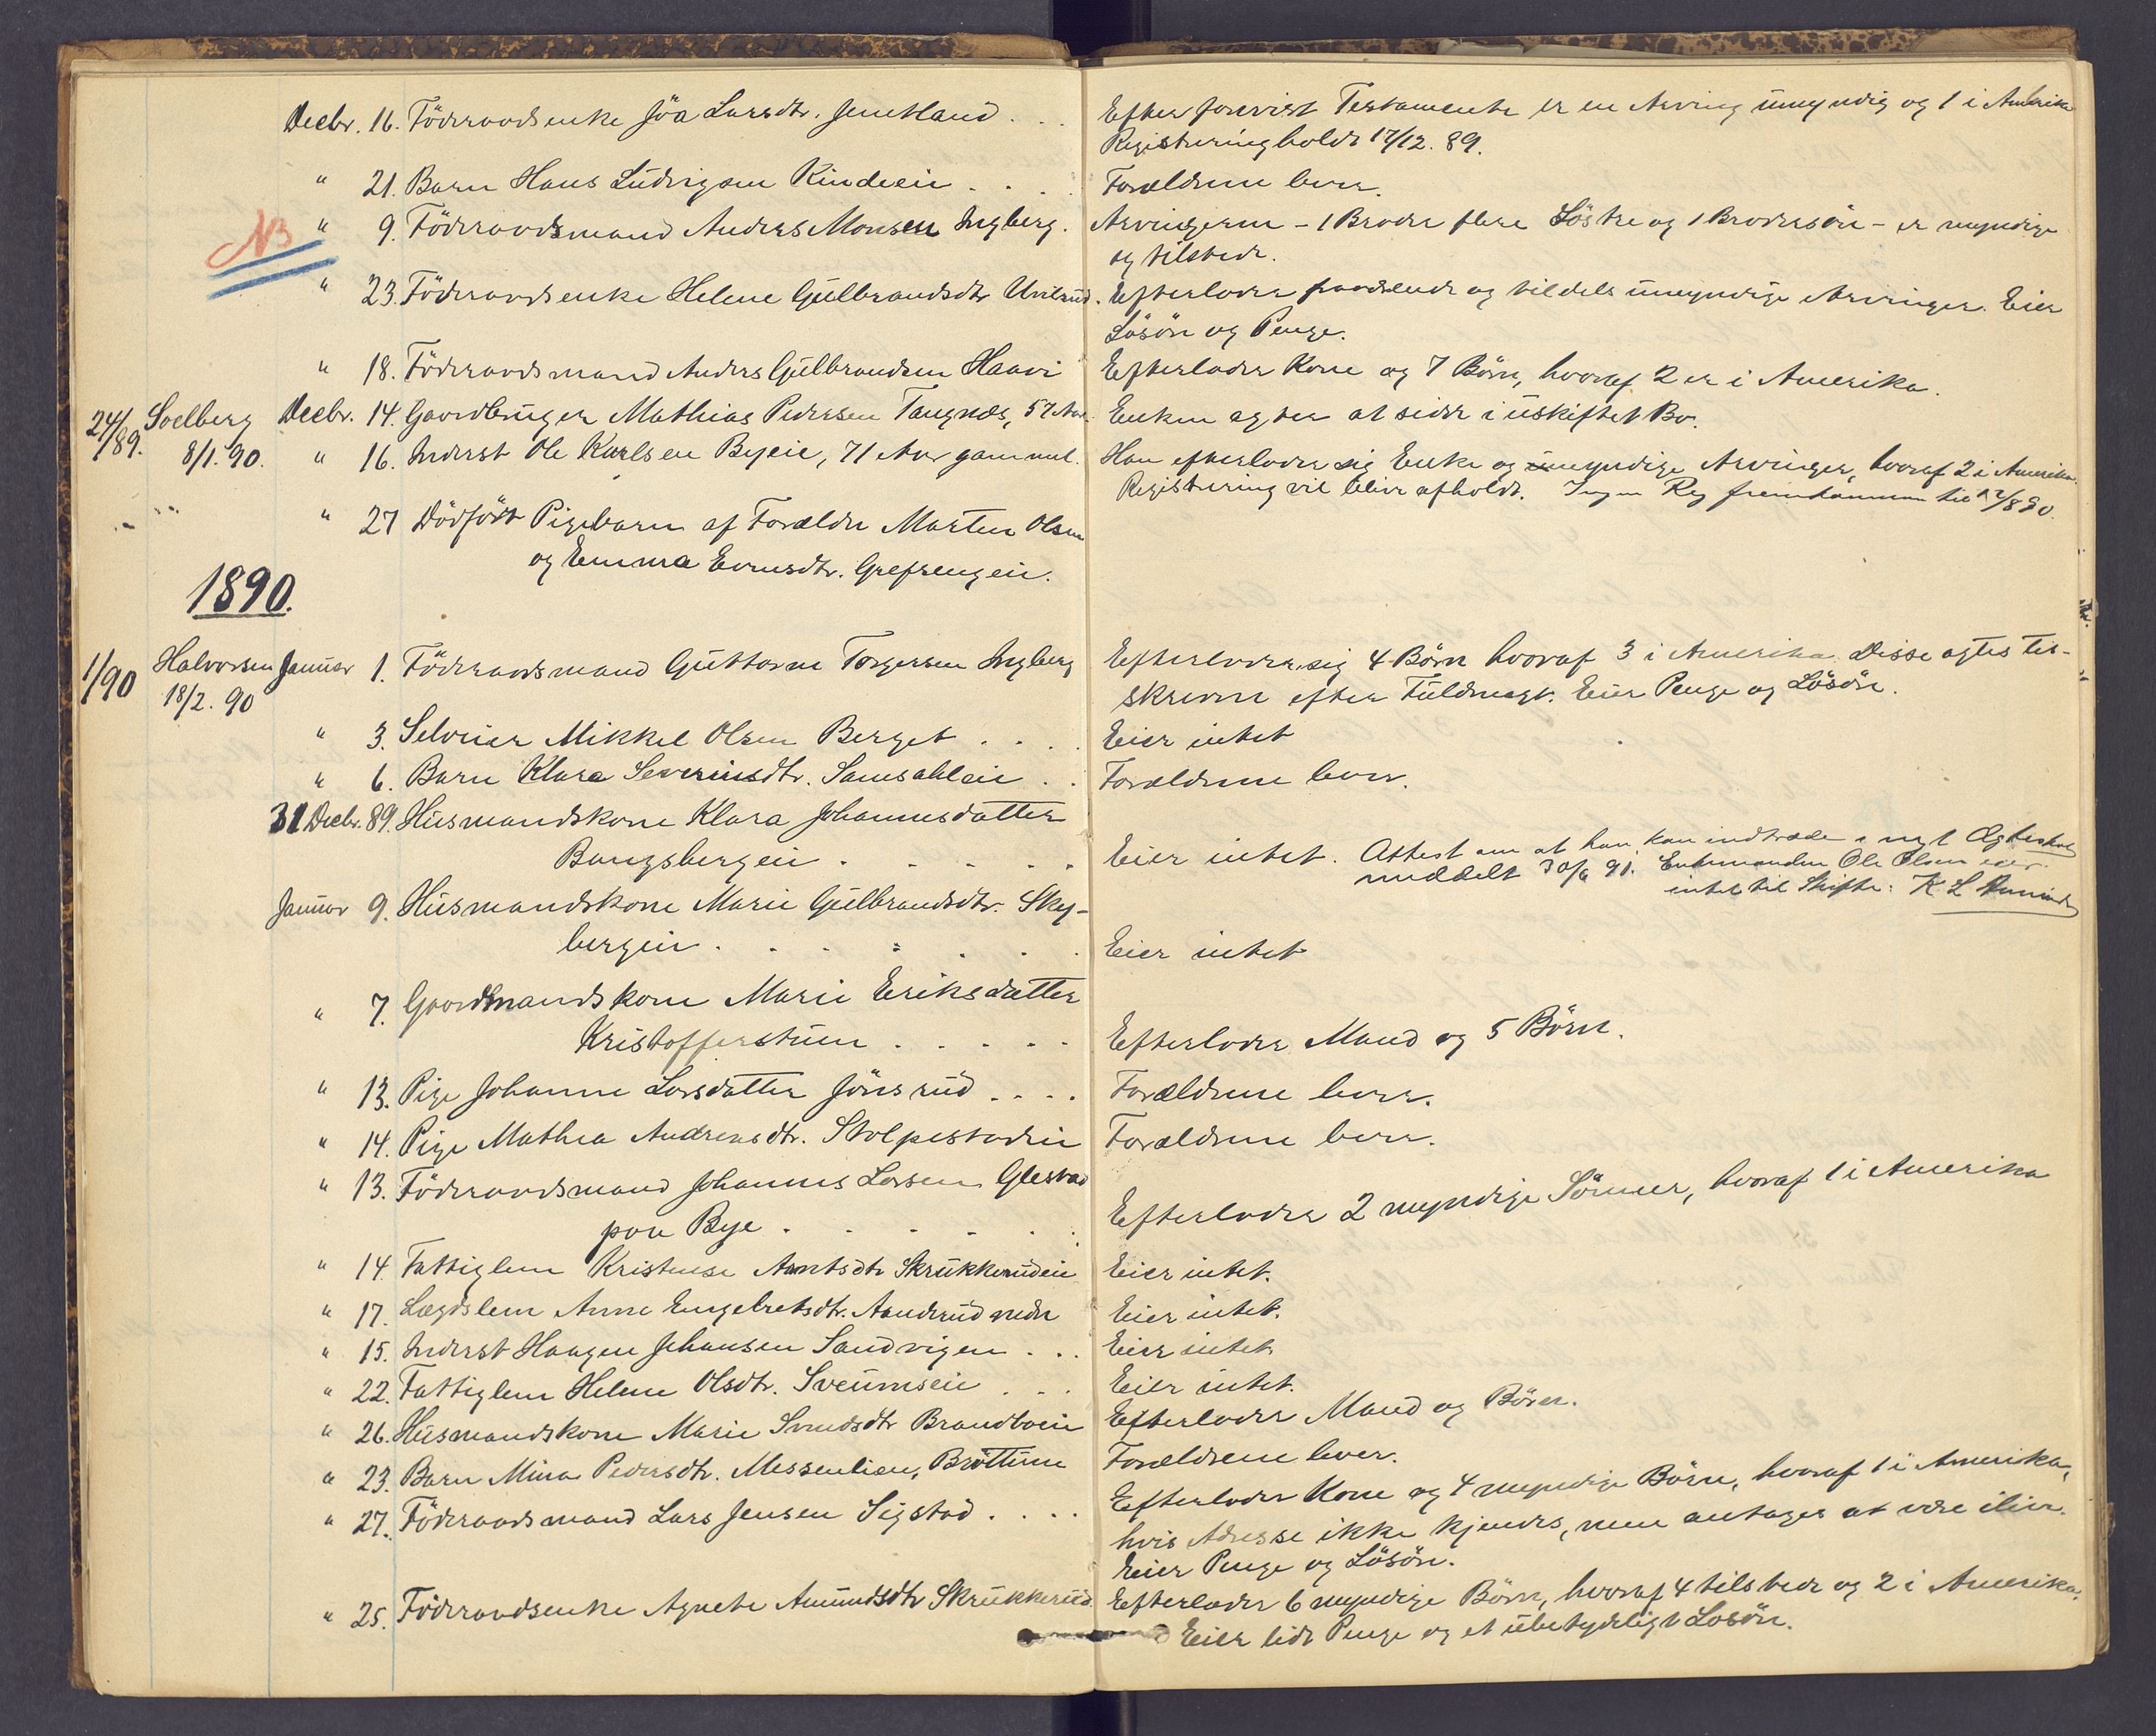 Decbr. 16. Föderaadsenke Jöa Larsdtr. Jemtland . . . Efter forevist Testamente er en Arving umyndig og 1 i Amerika
Registrering holdt 17/12. 89.
" 21. Barn Hans Ludvigsen Rindeeie . . . . Forældrene lever.
NB " 9. Föderaadsmand Anders Monsen Ingberg. Arvingerne - 1 Broder flere Söstre og 1 Brodersön - er myndige
og tilstede.
" 23. Föderaadsenke Helene Gulbrandsdtr . Efterlader fraværende og tildels umyndige Arvinger. Eier
Lösöre og Penge.
" 18. Föderaadsmand Anders Gulbrandsen Haavi Efterlader Kone og 7 Börn, hvoraf 2 er i Amerika.
24/89. Soelberg Decbr. 14. Gaardbruger Mathias Pedersen Tangnæs, 57 Aar. Enken agter at sidde i uskiftet Bo.
8/1. 90. " 16. Inderst Ole Karlsen Byeie, 71 Aar gammel. Han efterlader sig Enke og myndige Arvinger, hvoraf 2 i Amerika.
Registrering vil blive afholdt. Ingen Reg fremkommen til 12/8 90.
" 27 Dödfödt Pigebarn af Forældre Marten Olsen
og Emma Evensdtr. Grefsengeie.
1890.
1/90 Halvorsen Januar 1. Föderaadsmand Guttorm Torgersen Ingberg Efterlader sig 4 Börn hvoraf 3 i Amerika. Disse agtes til-
18/2. 90 skrevne efter Fuldmagt. Eier Penge og Lösöre.
" 3. Selveier Mikkel Olsen Berget . . . . Eier intet
" 6. Barn Klara Severinsdtr. Samsahleie . . Forældrene lever.
31 Decbr. 89. Husmandskone Klara Johannesdatter
Bangsbergeie . . . . . Eier intet. Attest om at han kan indtræde i nyt Ægteskab
meddelt 30/6 91. Enkemanden Ole Olsen eier
intet til Skifte: K. L.
Januar 9. Husmandskone Marie Gulbrandsdtr. Sky-
bergeie . . . . . . Eier intet
" 7. Gaardmandskone Marie Eriksdatter
Kristofferstuen . . . . . Efterlader Mand og 5 Börn.
" 13. Pige Johanne Larsdatter Jönsrud . . . . Forældrene lever.
" 14. Pige Mathea Andreasdtr. Stolpestadeie Forældrene lever.
" 13. Föderaadsmand Johannes Larsen Glestad
paa Bye . . . . . . Efterlader 2 myndige Sönner, hvoraf 1 i Amerika
" 14 Fattiglem Kristense Arntsdtr Skrukkerudeie Eier intet.
" 17. Lægdslem Anne Engebretsdtr. Aanderud nedre Eier intet.
" 15. Inderst Haagen Johansen Sandvigen . . . Eier intet
" 22. Fattiglem Helene Olsdtr. Sveumseie . . . Eier intet.
" 26. Husmandskone Marie Svendsdtr Brandboeie Efterlader Mand og Börn.
" 23. Barn Mina Pedersdtr. Messenlien, Bröttum Forældrene lever.
" 27. Föderaadsmand Lars Jensen Sigstad . . . . Efterlader Kone og 4 myndige Börn, hvoraf 1 i Amerika,
hvis Adresse ikke kjendes, men antages at være ilive.
Eier Penge og Lösöre.
" 25. Föderaadsenke Agnete Amundsdtr Skrukkerud Efterlader 6 myndige Börn, hvoraf 4 tilstede og 2 i Amerika.
Eier lidt Penge og et ubetydeligt Lösöre.